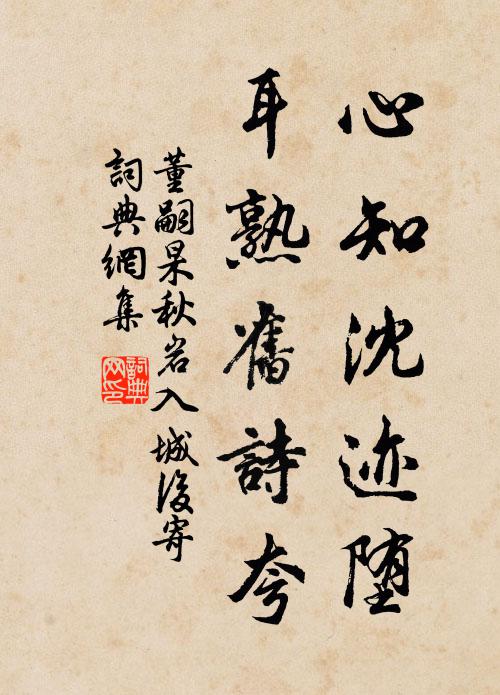 心知沈迹堕
耳熟舊詩夸
董嗣杲秋岩入城後寄
詞典網集
詞典
网印